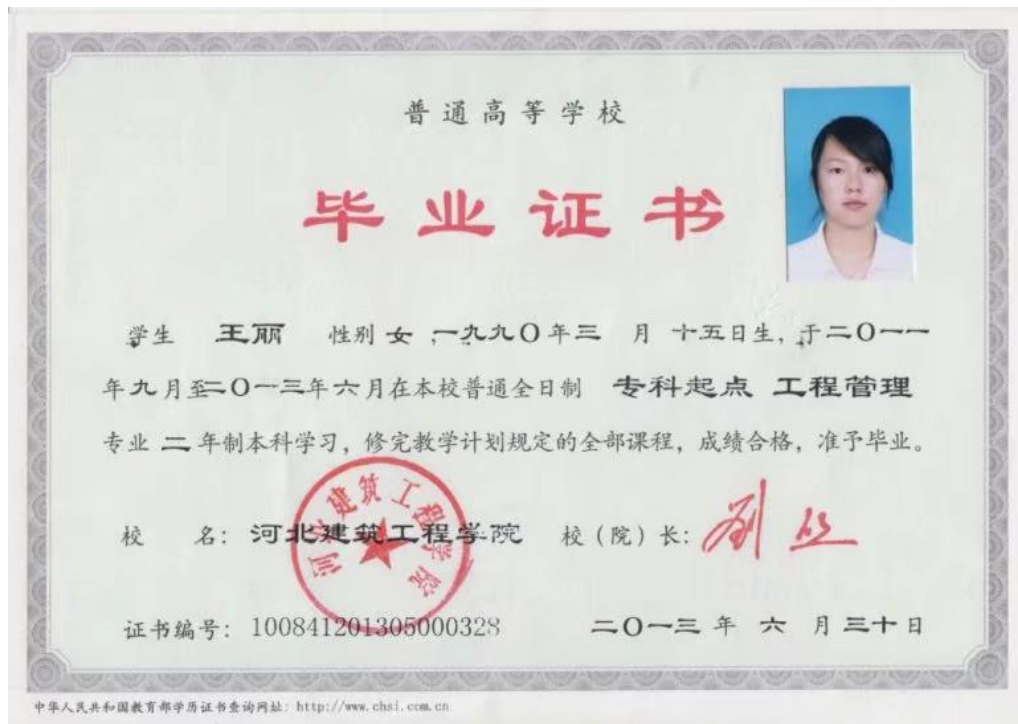 普通高等学校
毕业证书
学生 王丽 性别 女，一九九〇年三 月 十五日生，于二〇一一
年九月至二〇一三年六月在本校普通全日制 专科起点 工程管理
专业 二 年制本科学习，修完教学计划规定的全部课程，成绩合格，准予毕业。
河北建筑工程学院
校 名：河北建筑工程学院 校（院）长：
证书编号：100841201305000328 二〇一三 年 六 月 三十日
中华人民共和国教育部学历证书查询网址：http://www.chsi.com.cn